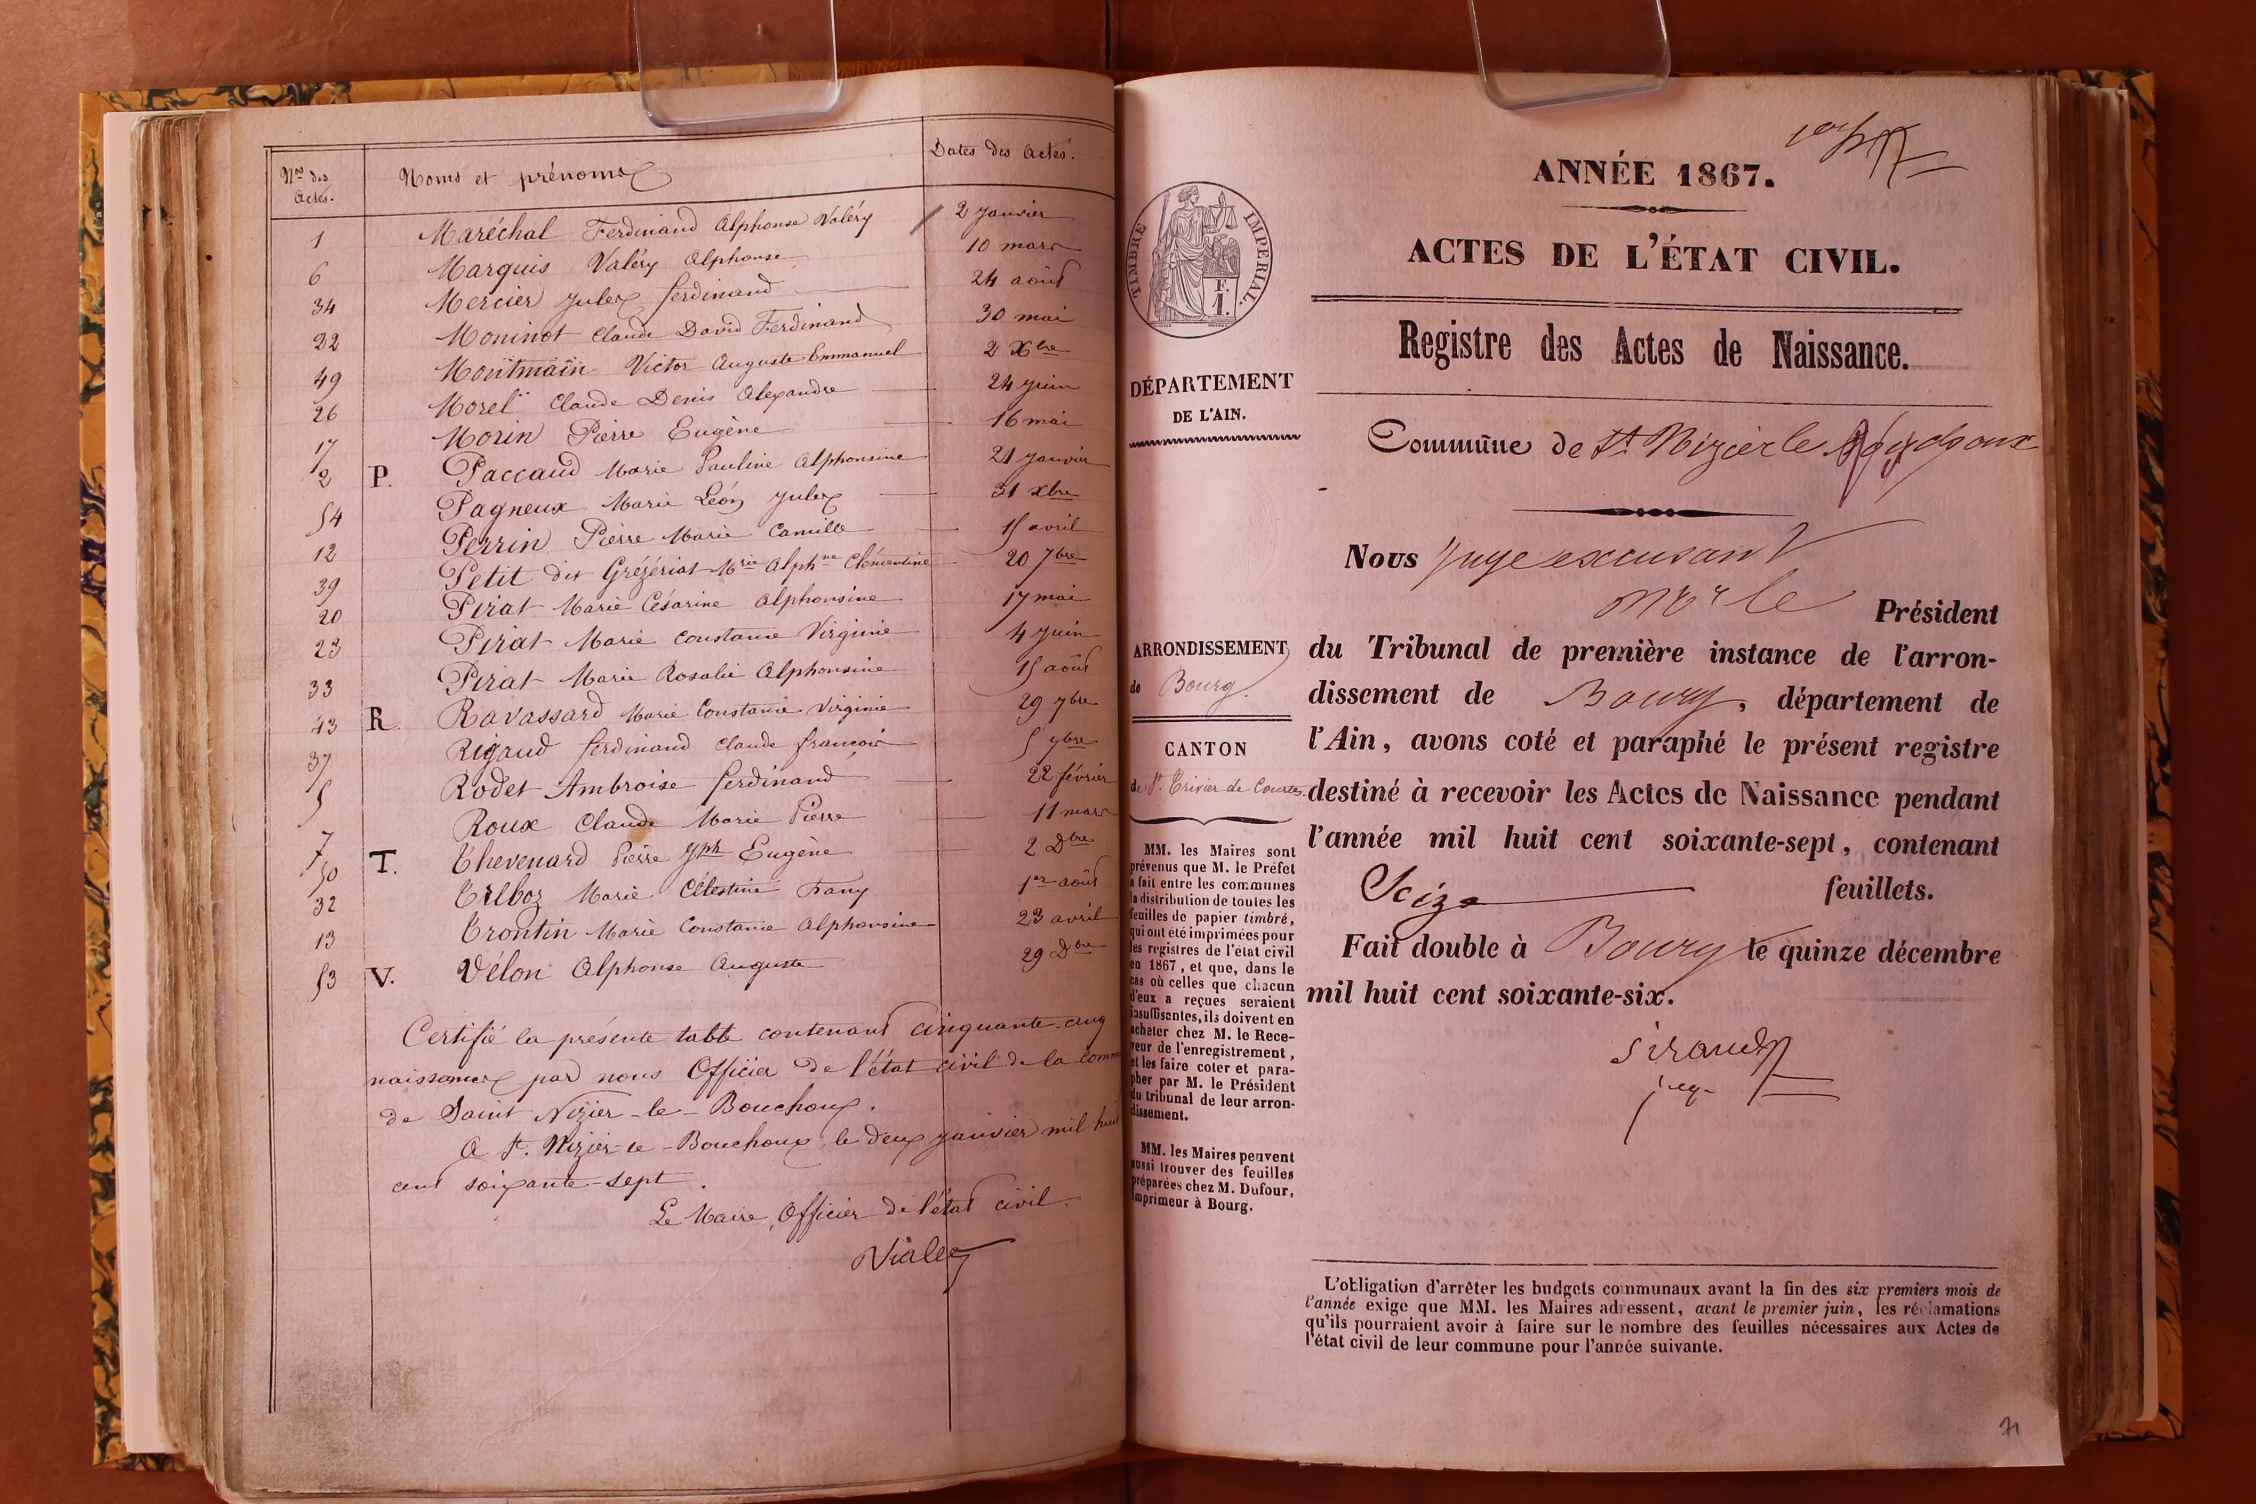 Nos des Actes. Noms et prénoms Dates des Actes.
1 Maréchal Ferdinand Alphonse Valéry 2 Janvier
6 Marquis Valéry Alphonse 10 mars
34 Mercier Jules ferdinand 24 août
22 Moninot Claude David Ferdinand 30 mai
49 Montmain Victor Auguste Emmanuel 2 Xbre
26 Morel Claude Denis Alexandre 24 juin
17 Morin Pierre Eugène 16 mai
2 P. Paccaud Marie Pauline Alphonsine 21 Janvier
54 Pagneux Marie Léon Jules 31 Xbre
12 Perrin Pierre Marie Camille 15 avril
39 Petit dit Grézériat Mrie Alphne Clémentine 20 7bre
20 Pirat Marie Césarine Alphonsine 17 mai
23 Pirat Marie Constance Virginie 4 Juin
33 Pirat Marie Rosalie Alphonsine 15 août
43 R. Ravassard Marie Constance Virginie 29 7bre
37 Rigaud ferdinand Claude françois 5 7bre
5 Rodet Ambroise ferdinand 22 février
7 Roux Claude Marie Pierre 11 mars
50 T. Thevenard Pierre Jph Eugène 2 Dbre
32 Trelboz Marie Célestine Fany 1er août
13 Trontin Marie Constance Alphonsine 23 avril
53 V. Vélon Alphonse Auguste 29 Dbre
Certifié la présente table contenant cinquante-cinq
naissances par nous Officier de l'état civil de la comm
de Saint Nizier-le-Bouchoux.
A St. Nizier-le-Bouchoux, le deux janvier mil huit
cent soixante-sept.
Le Maire, Officier de l'état civil.
TIMBRE IMPERIAL.
F.
1.
DÉPARTEMENT
DE L'AIN.
ARRONDISSEMENT
de Bourg.
CANTON
de St. Trivier de Courtes.
MM. les Maires sont
prévenus que M. le Préfet
a fait entre les communes
la distribution de toutes les
feuilles de papier timbré,
qui ont été imprimées pour
les registres de l'état civil
en 1867, et que, dans le
cas où celles que chacun
d'eux a reçues seraient
insuffisantes, ils doivent en
acheter chez M. le Rece-
veur de l'enregistrement,
et les faire coter et para-
pher par M. le Président
du tribunal de leur arron-
dissement.
MM. les Maires peuvent
aussi trouver des feuilles
préparées chez M. Dufour,
imprimeur à Bourg.
ANNÉE 1867.
ACTES DE L'ÉTAT CIVIL.
Registre des Actes de Naissance.
Commune de St Nizier le Bouchoux
Nous Juge excusant
Mr le Président
du Tribunal de première instance de l'arron-
dissement de Bourg, département de
l'Ain, avons coté et paraphé le présent registre
destiné à recevoir les Actes de Naissance pendant
l'année mil huit cent soixante-sept, contenant
Seize feuillets.
Fait double à Bourg le quinze décembre
mil huit cent soixante-six.
L'obligation d'arrêter les budgets communaux avant la fin des six premiers mois de
l'année exige que MM. les Maires adressent, avant le premier juin, les réclamations
qu'ils pourraient avoir à faire sur le nombre des feuilles nécessaires aux Actes de
l'état civil de leur commune pour l'année suivante.
71